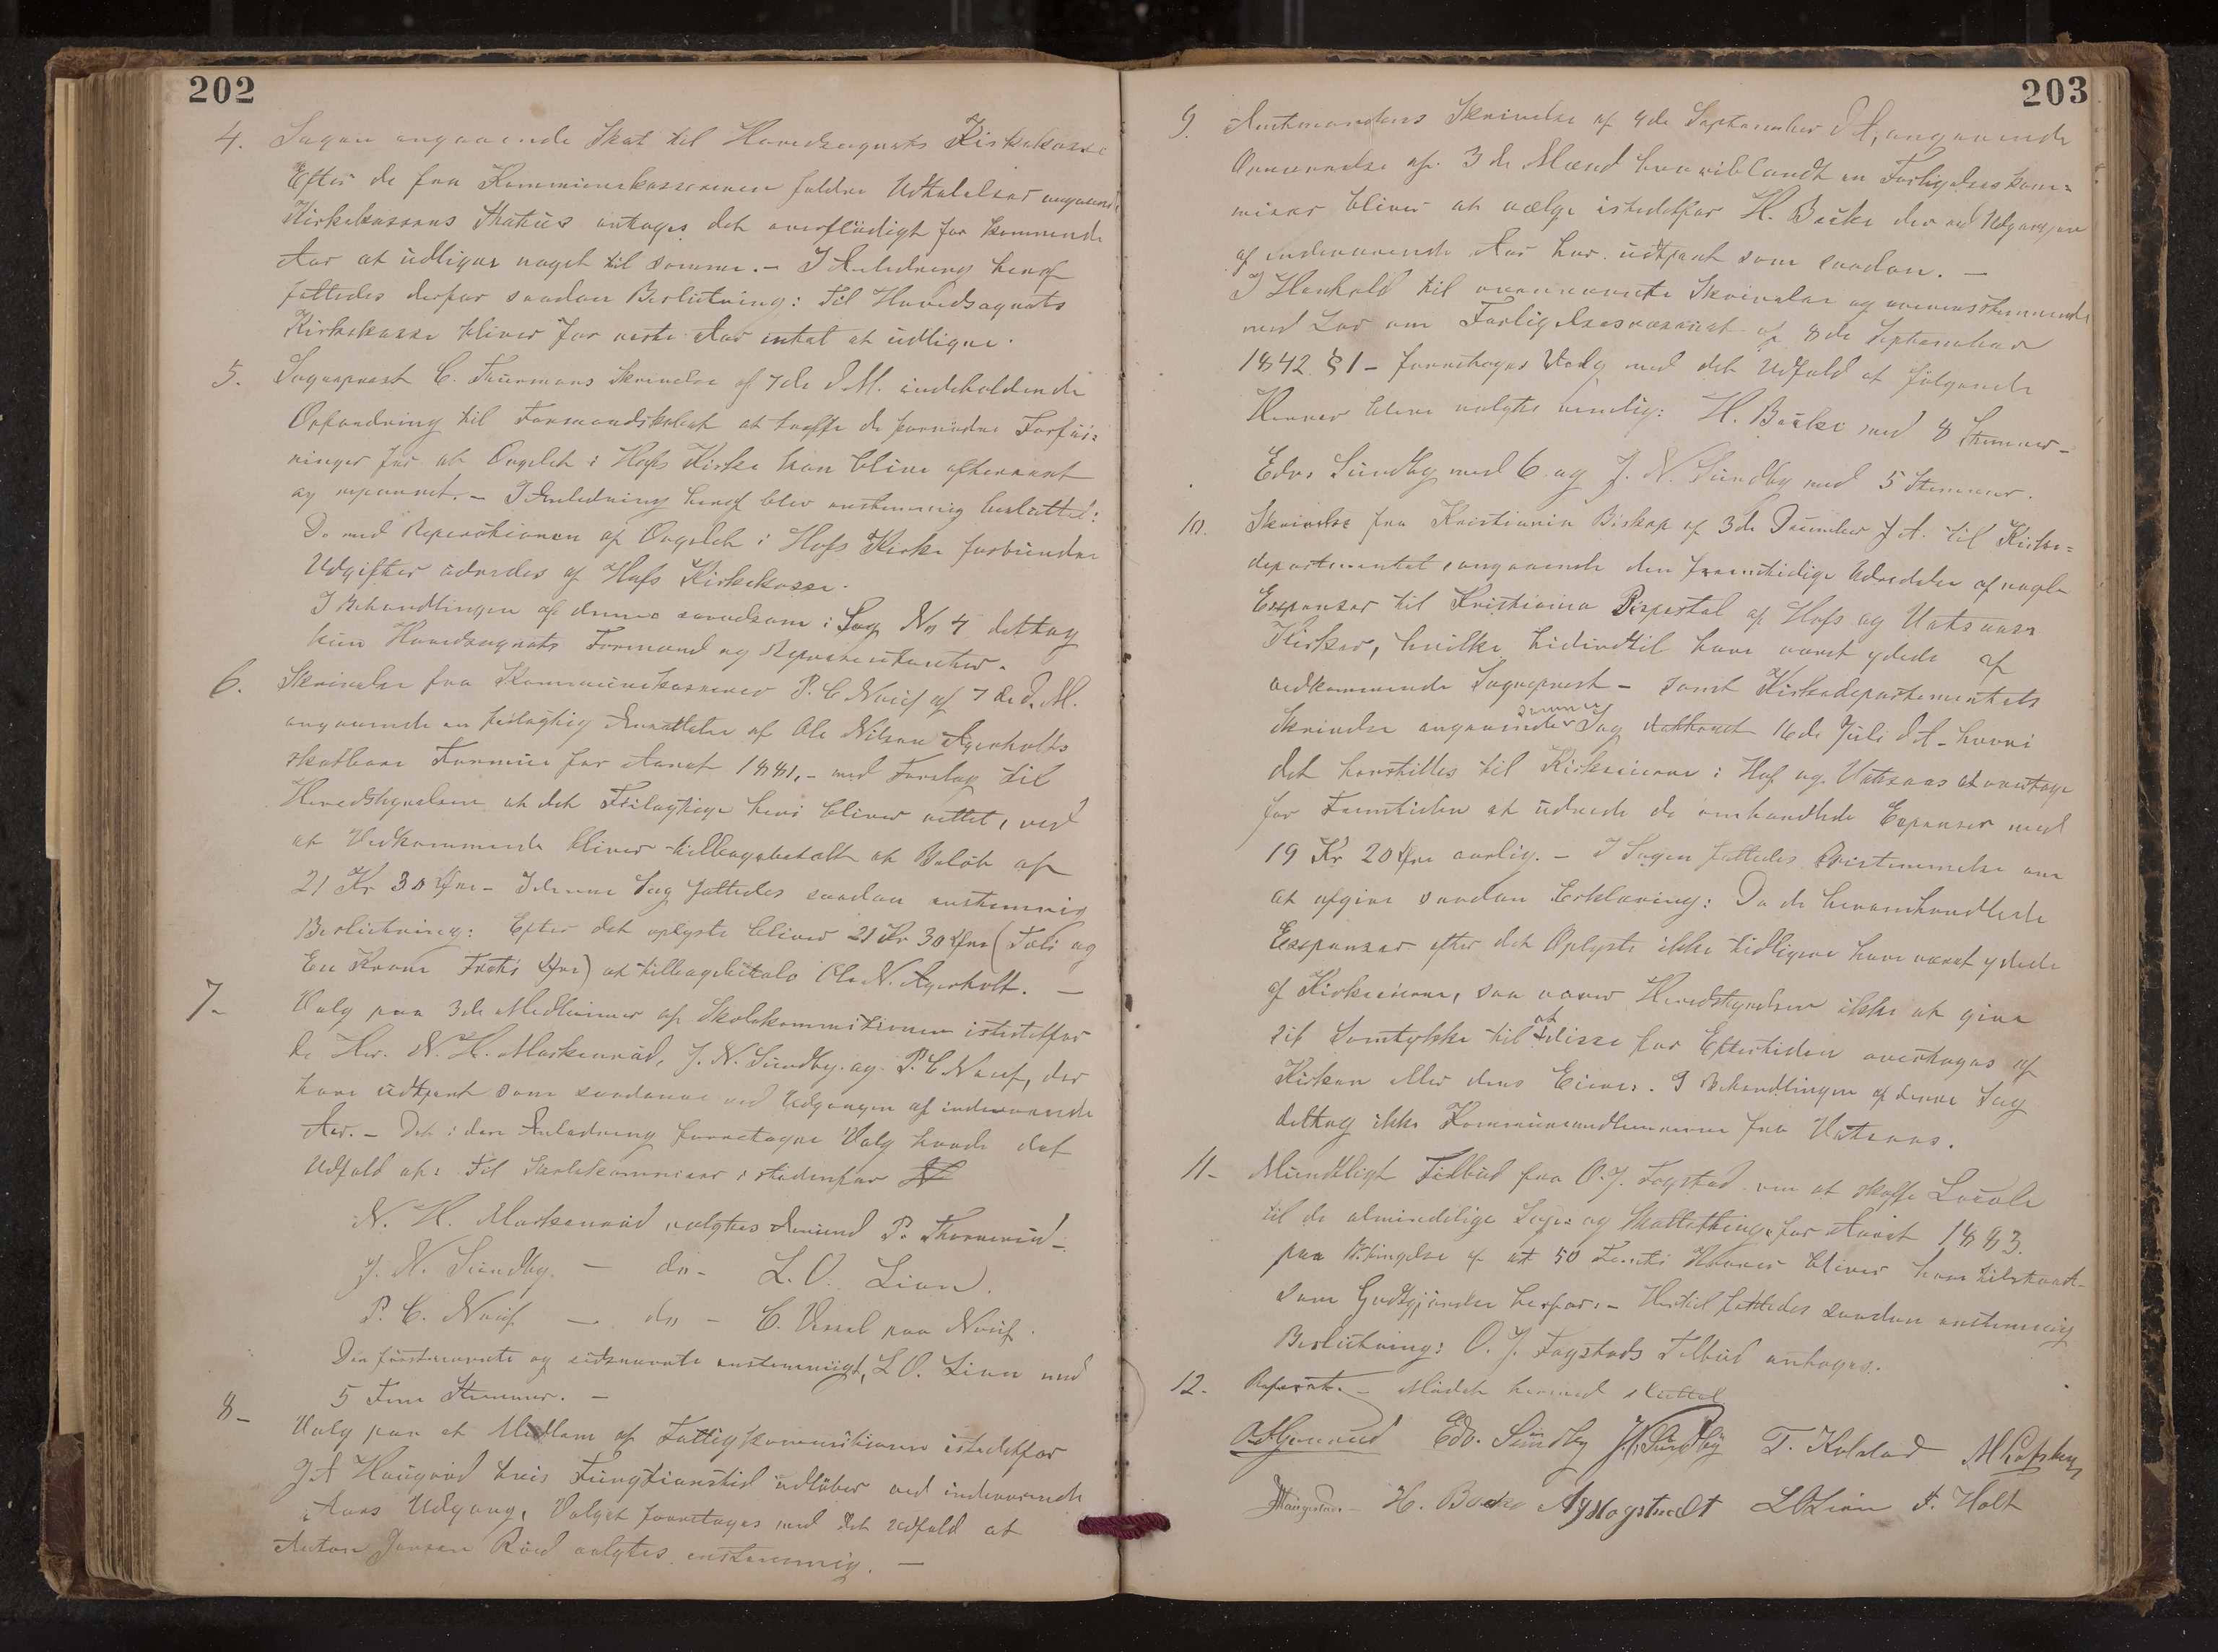 202
4. Sagen angaaende Skat til Hovedsognets Kirkekasse
Efter de fra Kommunekassereren faldne Udtalelser angaaende
Kirkekassens Status antages det overflødigt for kommende
Aar at udligne noget til samme. - I Anledning heraf
fattedes derfor saadan Beslutning: Til Hovedsognets
Kirkekasse bliver for næste Aar intet at udligne.
5. Sogneprest C. Skrivelse af 7de d. M. indeholdende
Opfordring til Formandskabet at træffe de fornødne Forføi-
ninger for at Orgelet i Hofs Kirke kan blive efterseet
og repareret. - I Anledning heraf blev enstemmig besluttet:
De med Reparationen af Orgelet i Hofs Kirke forbundne
Udgifter udredes af Hofs Kirkekasse.
I Behandlingen af denne saavelsom i Sag No 4 deltog
kun Hovedsognets Formænd og Repræsentanter.
6. Skrivelse fra Kommunekasserer P. C. Nauf af 7de d. M.
angaaende en feilagtig Ansættelse af Ole Nilsen Agerholts
skatbare Formue for Aaret 1881, - med Forslag til
Herredsstyrelsen at det Feilagtige heri bliver rettet, ved
at Vedkommende bliver tilbagebetalt et Beløb af
21 Kr 30 Øre - I denne Sag fattedes saadan enstemmig
Beslutning: Efter det oplyste bliver 21 Kr 30 Øre (Tolv og
En Krone Træti Øre) at tilbagebetale Ole N. Agerholt. -
7. Valg paa 3de Medlemmer af Skolekommissionen istedetfor
de Hrr. N. H. Markerud, J. N. Sundby og P. C Nauf, der
have udtjent som saadanne ved Udgangen af indeværende
Aar. - Det i den Anledning foretagne Valg havde det
Udfald at: Til Skolekommissær istedenfor N
N. H. Markerud valgtes Amund P. Thorrerud -
J. N. Sundby. - do - L. O. Lien.
P. C. Nauf - do - C. Wessel paa Nauf.
Den førstnævnte og sidsnævnte enstemmigt, L O. Lien med
5 Fem Stemmer. -
8 - Valg paa et Medlem af Fattigkommisionen istedetfor
J A Haugrød hvis Fungtionstid udløber ved indeværende
Aars Udgang. Valget foretages med det Udfald at
Anton Jensen Rød valgtes enstemmig. -
203
9. Amtmandens Skrivelse af 4de September d A, angaaende
Opnævnelse af 3de Mænd hvoriblandt en Forligelseskom-
misær bliver at vælge istedetfor H. Bække der ved Udgangen
af indeværende Aar har udtjent som saadan. -
I Henhold til ovennævnte Skrivelse og overensstemmende
med Lov om Forligelsesvæsenet af 8de September
1842 § 1 - foretages Valg med det Udfald at følgende
Herrer bleve valgte nemlig: H. Bække med 8 Stemmer -
Edv. Sundby med 6 og J. N. Sundby med 5 Stemmer.
10. Skrivelse fra Kristiania Biskop af 3de f A. til Kirke-
departementet, angaaende den fremtidige Udredelse af nogle
Expenser til Kristiania Bispestol af Hofs og Vatsaas
Kirker, hvilke hidindtil have været ydede af
vedkommende Sogneprest - samt Kirkedepartementets
Skrivelse angaaende denne Sag 16de Juli d A - hvori
det henstilles til Kirkeeierne i Hof og Vatsaas at overtage
for Fremtiden at udrede de omhandlede Expenser med
19 Kr 20 Øre aarlig. - I Sagen fattedes Bestemmelse om
at afgive saadan Erklæring: Da de heromhandlede
Expenser efter det Oplyste ikke tidligere have været ydede
af Kirkeeierne, saa vover Herredstyrelsen ikke at give
sit Samtykke til at disse for Eftertiden overtages af
Kirken eller dens Eiere. I Behandlingen af denne Sag
deltog ikke Kommunemedlemmerne fra Vatsaas.
11 - Mundtligt Tilbud fra O. J. Fogstad om at skaffe Locale
til de almindelige Sage og Skattethinge for Aaret 1883.
paa Betingelse af at 50 Femti Kroner bliver ham tilstaaet
som Godtgjørelse herfor. - Hertil fattedes saadan enstemmig
Beslutning: O. J. Fogstads Tilbud antages.
12 - Referat. - Mødet hermed sluttet
Edv. Sundby J. N. Sundby T. Kolstad
H. Bække L O Lien F. Holt